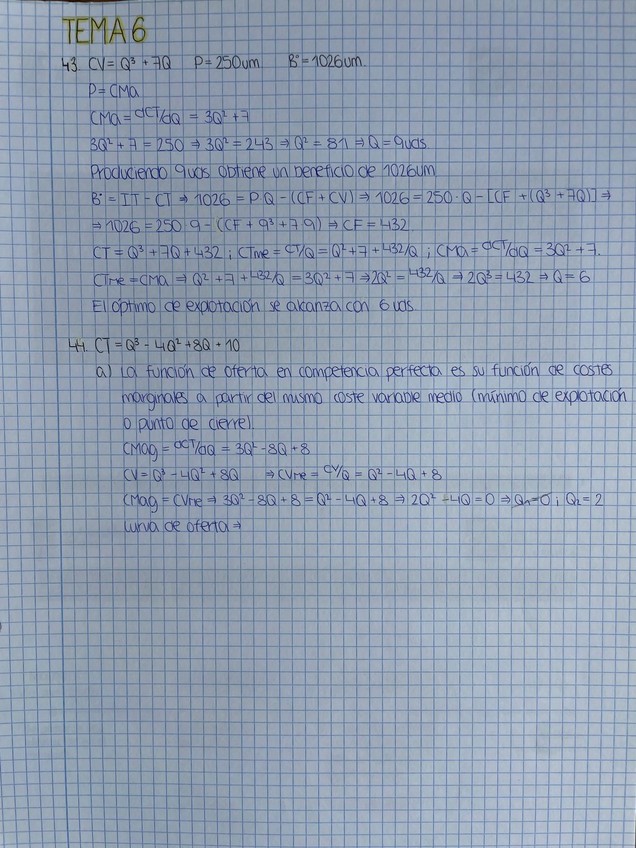 TEMA 6
43. CV = Q³ + 7Q P = 250um Bº = 1026um.
P = CMa
CMa = dCT/dQ = 3Q² + 7
3Q² + 7 = 250 ⇒ 3Q² = 243 ⇒ Q² = 81 ⇒ Q = 9uds.
Produciendo 9uds obtiene un beneficio de 1026um
Bº = IT - CT ⇒ 1026 = P·Q - (CF + CV) ⇒ 1026 = 250·Q - [CF + (Q³ + 7Q)] ⇒
⇒ 1026 = 250·9 - (CF + 9³ + 7·9) ⇒ CF = 432
CT = Q³ + 7Q + 432 ; CTme = CT/Q = Q² + 7 + 432/Q ; CMa = dCT/dQ = 3Q² + 7.
CTme = CMa ⇒ Q² + 7 + 432/Q = 3Q² + 7 ⇒ 2Q² = 432/Q ⇒ 2Q³ = 432 ⇒ Q = 6
El óptimo de explotación se alcanza con 6 uds.
44. CT = Q³ - 4Q² + 8Q + 10
a) La función de oferta en competencia perfecta es su función de costes
marginales a partir del mismo coste variable medio (mínimo de explotación
o punto de cierre).
CMag = dCT/dQ = 3Q² - 8Q + 8
CV = Q³ - 4Q² + 8Q ⇒ CVme = CV/Q = Q² - 4Q + 8
CMag = CVme ⇒ 3Q² - 8Q + 8 = Q² - 4Q + 8 ⇒ 2Q² - 4Q = 0 ⇒ Q₁ = 0 ; Q₂ = 2
Curva de oferta ⇒